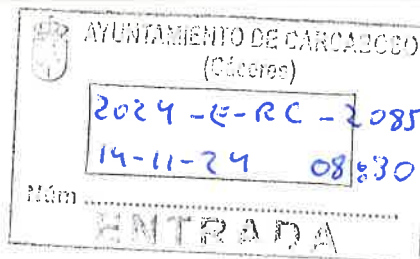 AYUNTAMIENTO DE CARCABOSO
(Cáceres)
2024-E-RC-2085
14-11-24 08:30
Núm ........................
ENTRADA